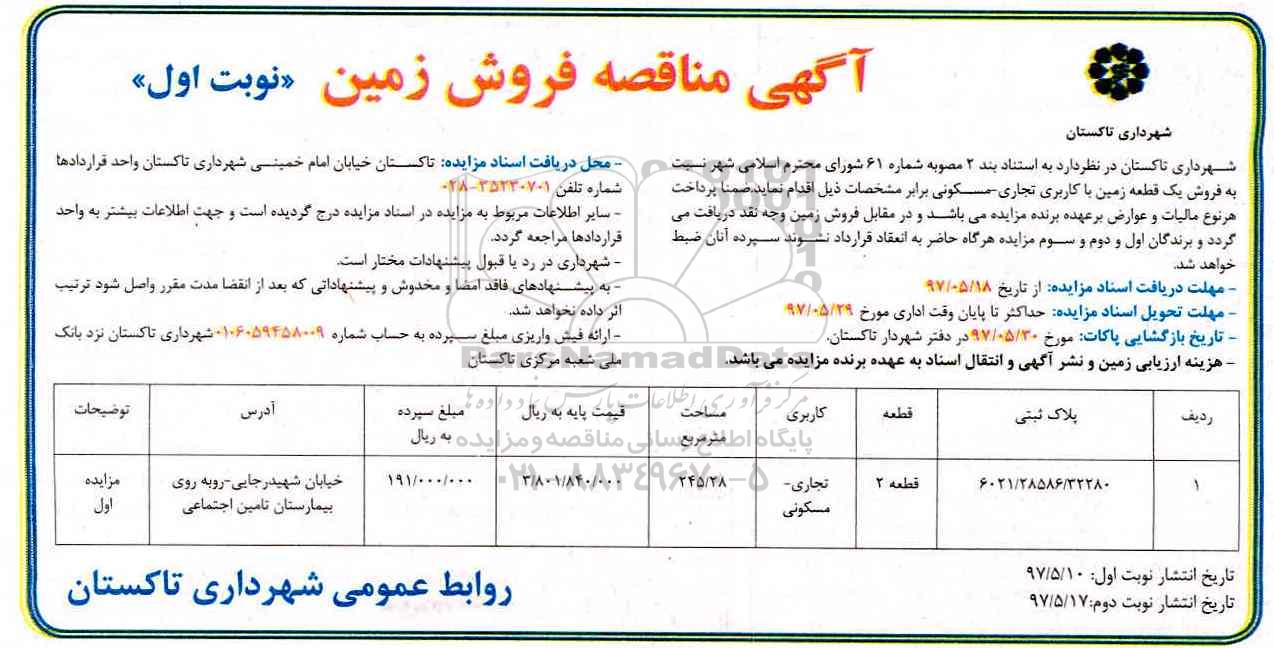 آگهی مناقصه فروش زمین «نوبت اول»
شهرداری تاکستان
شهرداری تاکستان در نظردارد به استناد بند ۲ مصوبه شماره ۶۱ شورای محترم اسلامی شهر نسبت
به فروش یک قطعه زمین با کاربری تجاری-مسکونی برابر مشخصات ذیل اقدام نماید.ضمنا پرداخت
هرنوع مالیات و عوارض برعهده برنده مزایده می باشد و در مقابل فروش زمین وجه نقد دریافت می
گردد و برندگان اول و دوم و سوم مزایده هرگاه حاضر به انعقاد قرارداد نشوند سپرده آنان ضبط
خواهد شد.
- مهلت دریافت اسناد مزایده: از تاریخ ۹۷/۰۵/۱۸
- مهلت تحویل اسناد مزایده: حداکثر تا پایان وقت اداری مورخ ۹۷/۰۵/۲۹
- تاریخ بازگشایی پاکات: مورخ ۹۷/۰۵/۳۰در دفتر شهردار تاکستان.
- هزینه ارزیابی زمین و نشر آگهی و انتقال اسناد به عهده برنده مزایده می باشد.
- محل دریافت اسناد مزایده: تاکستان خیابان امام خمینی شهرداری تاکستان واحد قراردادها
شماره تلفن ۳۵۲۳۰۷۰۱-۰۲۸
- سایر اطلاعات مربوط به مزایده در اسناد مزایده درج گردیده است و جهت اطلاعات بیشتر به واحد
قراردادها مراجعه گردد.
- شهرداری در رد یا قبول پیشنهادات مختار است.
- به پیشنهادهای فاقد امضا و مخدوش و پیشنهاداتی که بعد از انقضا مدت مقرر واصل شود ترتیب
اثر داده نخواهد شد.
- ارائه فیش واریزی مبلغ سپرده به حساب شماره ۰۱۰۶۰۵۹۴۵۸۰۰۹شهرداری تاکستان نزد بانک
ملی شعبه مرکزی تاکستان
ParsNamadData
مرکز فرآوری اطلاعات پارس نماد داده ها
پایگاه اطلاع رسانی مناقصه و مزایده
۰۲۱-۸۸۳۴۹۶۷۰-۵
ردیف پلاک ثبتی قطعه کاربری مساحت مترمربع قیمت پایه به ریال مبلغ سپرده به ریال آدرس توضیحات
۱ ۶۰۲۱/۲۸۵۸۶/۳۲۲۸۰ قطعه ۲ تجاری-مسکونی ۲۴۵/۲۸ ۳/۸۰۱/۸۴۰/۰۰۰ ۱۹۱/۰۰۰/۰۰۰ خیابان شهیدرجایی-روبه روی بیمارستان تامین اجتماعی مزایده اول
تاریخ انتشار نوبت اول: ۹۷/۵/۱۰
تاریخ انتشار نوبت دوم:۹۷/۵/۱۷
روابط عمومی شهرداری تاکستان